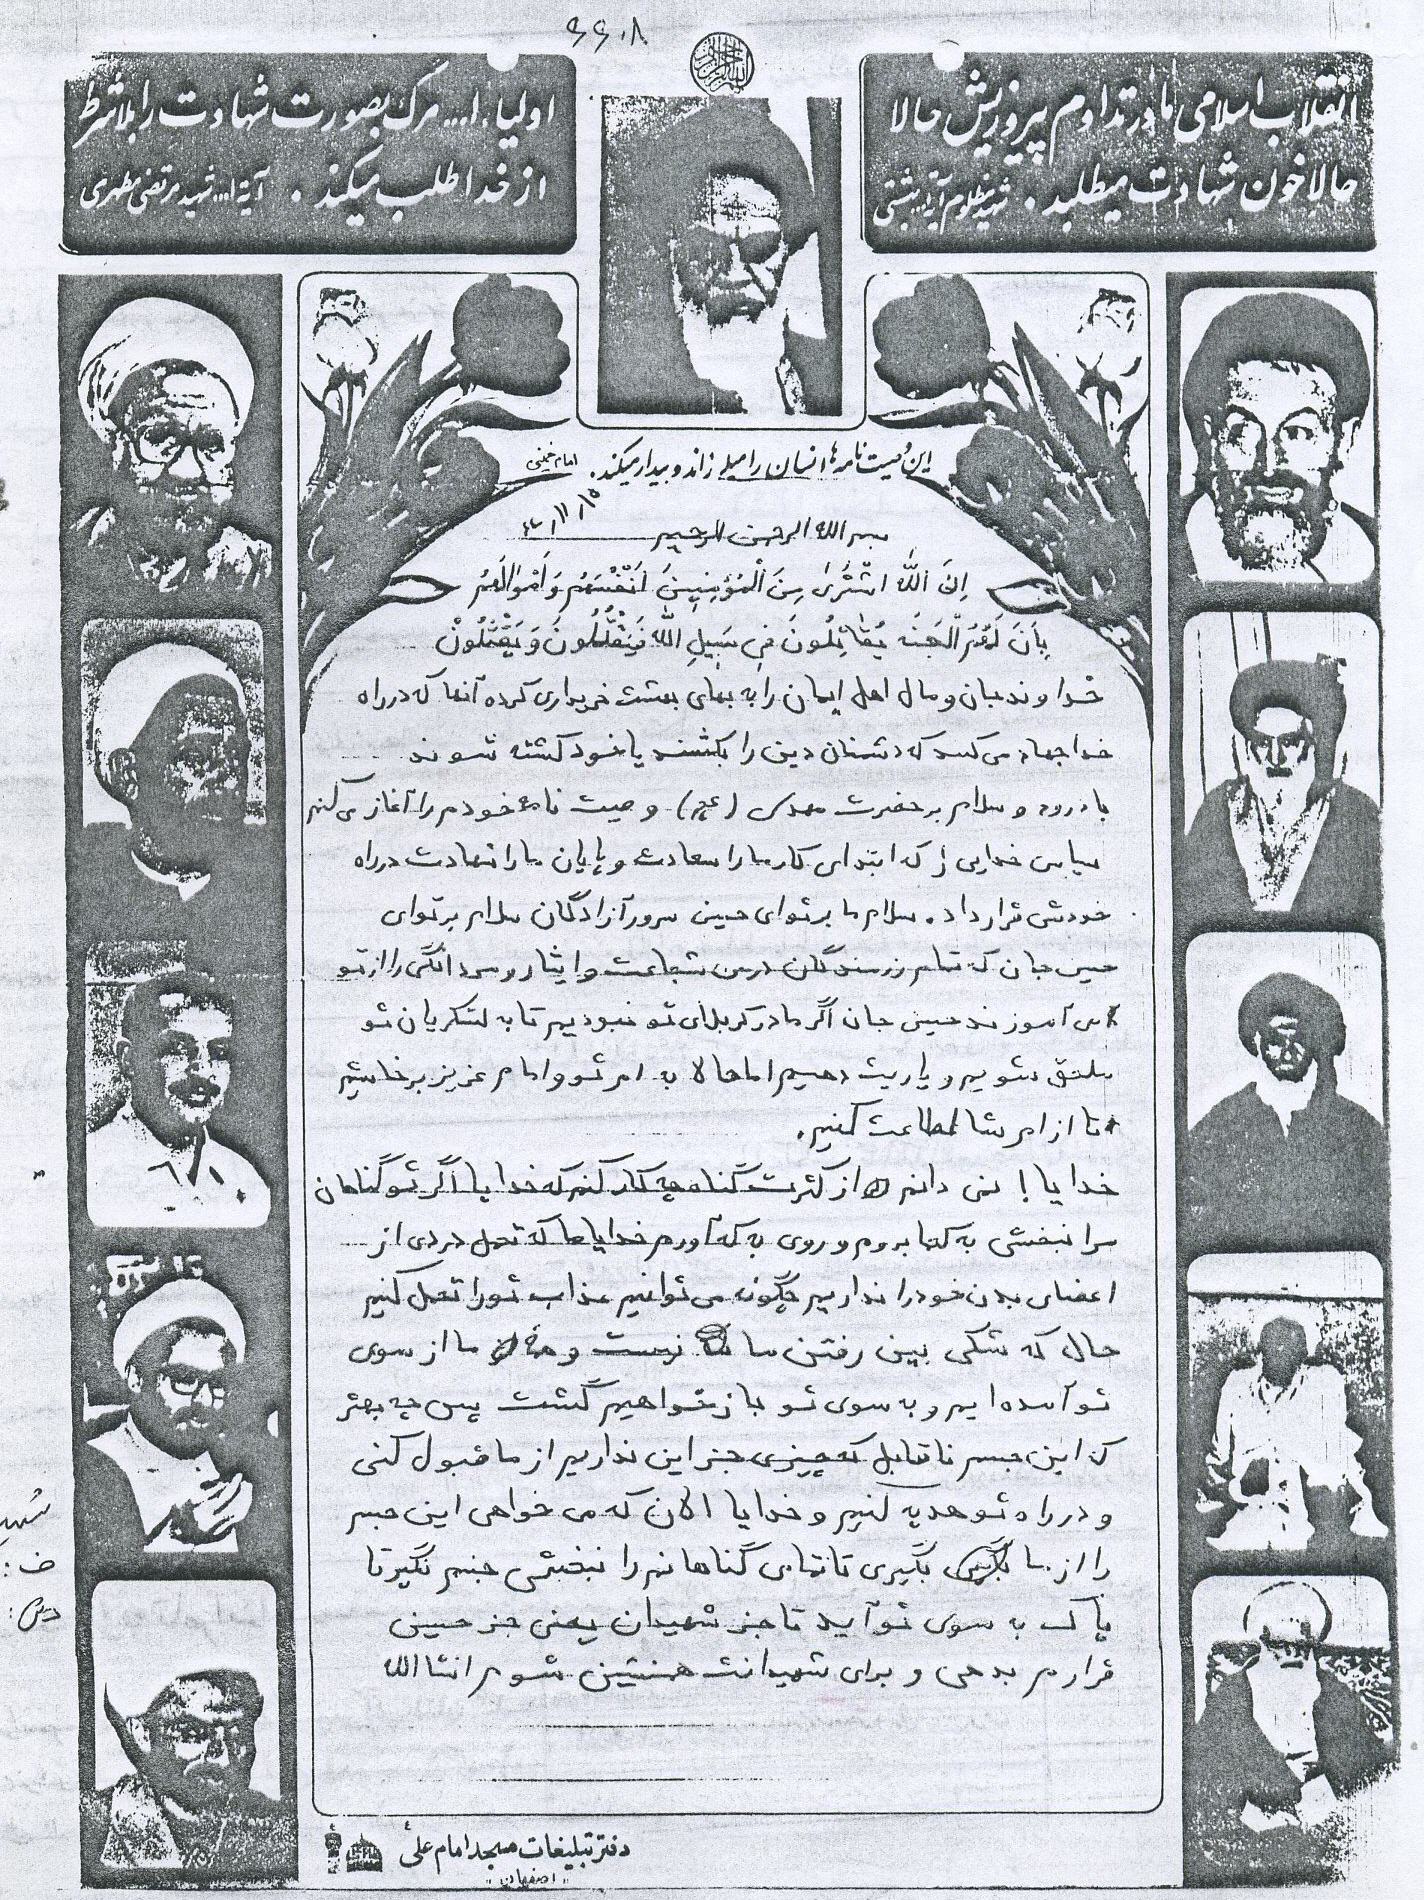 ۶۶۰۸
انقلاب اسلامی ما در تداوم پیروزیش حالا
حالا خون شهادت میطلبد. شهید مظلوم آیة... بهشتی
اولیاء ا... مرگ بصورت شهادت را بلاشرط
از خدا طلب میکند. آیة ا... شهید مرتضی مطهری
این وصیت نامه ها انسان را میلرزاند و بیدار میکند. امام خمینی
بسم الله الرحمن الرحیم
إنَ اللهَ اشْتَرىٰ مِنَ الْمُؤمِنِینَ اَنْفُسَهُم وَ اَمْوالَهُم
بِاَنَ لَهُمُ الجَنَه یُقاتِلُونَ فی سَبیلِ اللهِ فَیَقْتُلُونَ وَ یُقْتَلُونْ
خداوند جان و مال اهل ایمان را به بهای بهشت خریداری کرده آنها که در راه
خدا جهاد می کنند که دشمنان دین را بکشند یا خود کشته شوند
با درود و سلام بر حضرت مهدی (عج) وصیت نامهٔ خودم را آغاز می کنم
سپاس خدایی را که ابتدای کار ما را سعادت و پایان ما را شهادت در راه
خودش قرار داد. سلام ما بر توای حسین سرور آزادگان سلام بر توای
حسین جان که تمام رزمندگان درس شجاعت و ایثار و مردانگی را از تو
می آموزند حسین جان اگر ما در کربلای تو نبودیم تا به لشکریان تو
ملحق شویم و یاریت دهیم اما حالا به امر تو و امام عزیز برخاستیم
تا از امر شما اطاعت کنیم.
خدایا! نمی دانم از کثرت گناه چه کار کنم که خدایا اگر تو گناهان
مرا نبخشی به کجا بروم و روی به که آورم خدایا ما که تحمل دردی از
اعضای بدن خود را نداریم چگونه می توانیم عذاب تو را تحمل کنیم
حال که شکی بین رفتن ما نیست و ما از سوی
تو آمده ایم و به سوی تو باز خواهیم گشت پس چه بهتر
که این جسم ناقابل که چیزی جز این نداریم از ما قبول کنی
و در راه تو هدیه کنیم و خدایا الان که می خواهی این جسم
را از ما بگیری تا تمامی گناهانم را نبخشی جنبم نگیر تا
پاک به سوی تو آید تا جزء شهیدان یعنی جز حسین
قرارم بدهی و برای شهیدانت همنشین شوم انشاالله
دفتر تبلیغات مسجد امام علی
"اصفهان"